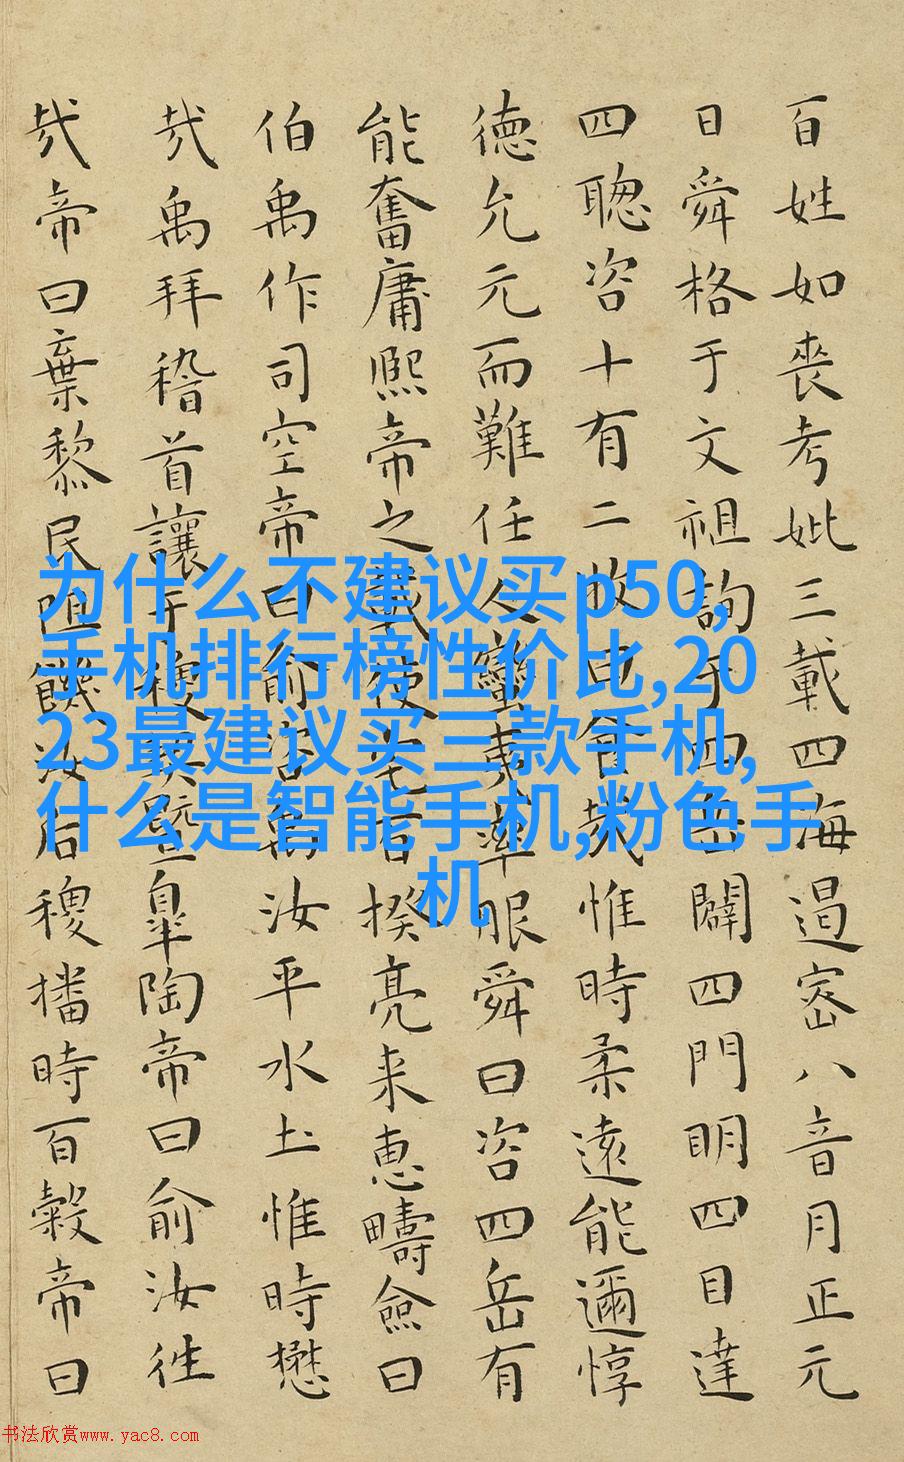 百姓如喪考妣三載四海遏密八音月正元
日舜格于文祖詢于四岳闢四門明四目達
四聰咨十有二牧曰食哉惟時柔遠能邇惇
德允元而難任人蠻夷率服舜曰咨四岳有
能奮庸熙帝之載使宅百揆亮来惠疇僉曰
伯禹作司空帝曰俞咨禹汝平水土惟時懋
哉禹拜稽首讓于稷契暨皐陶帝曰俞汝往
哉帝曰棄黎民阻饑汝后稷播時百穀帝曰
为什么不建议买p50,
手机排行榜性价比,20
23最建议买三款手机,
什么是智能手机,粉色手
机
书法欣赏www.yac8.com